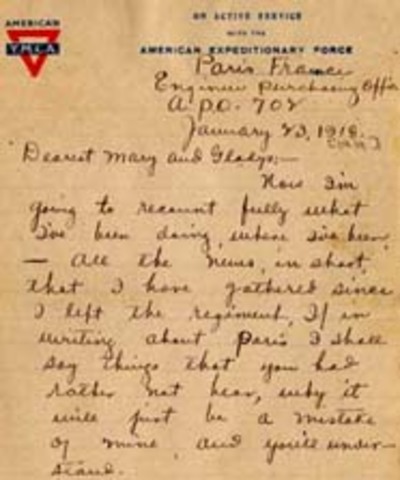 AMERICAN
YMCA
ON ACTIVE SERVICE
WITH THE
AMERICAN EXPEDITIONARY FORCE
Paris France
Engineer Purchasing Office
A.P.O. 702
January 23, 1918.
[1919]
Dearest Mary and Gladys;—
Now I'm
going to recount fully what
I've been doing, where I've been,
— all the news, in short,
that I have gathered since
I left the regiment. If in
writing about Paris I shall
say things that you had
rather not hear, why it
will just be a mistake
of mine, and you'll under-
stand.